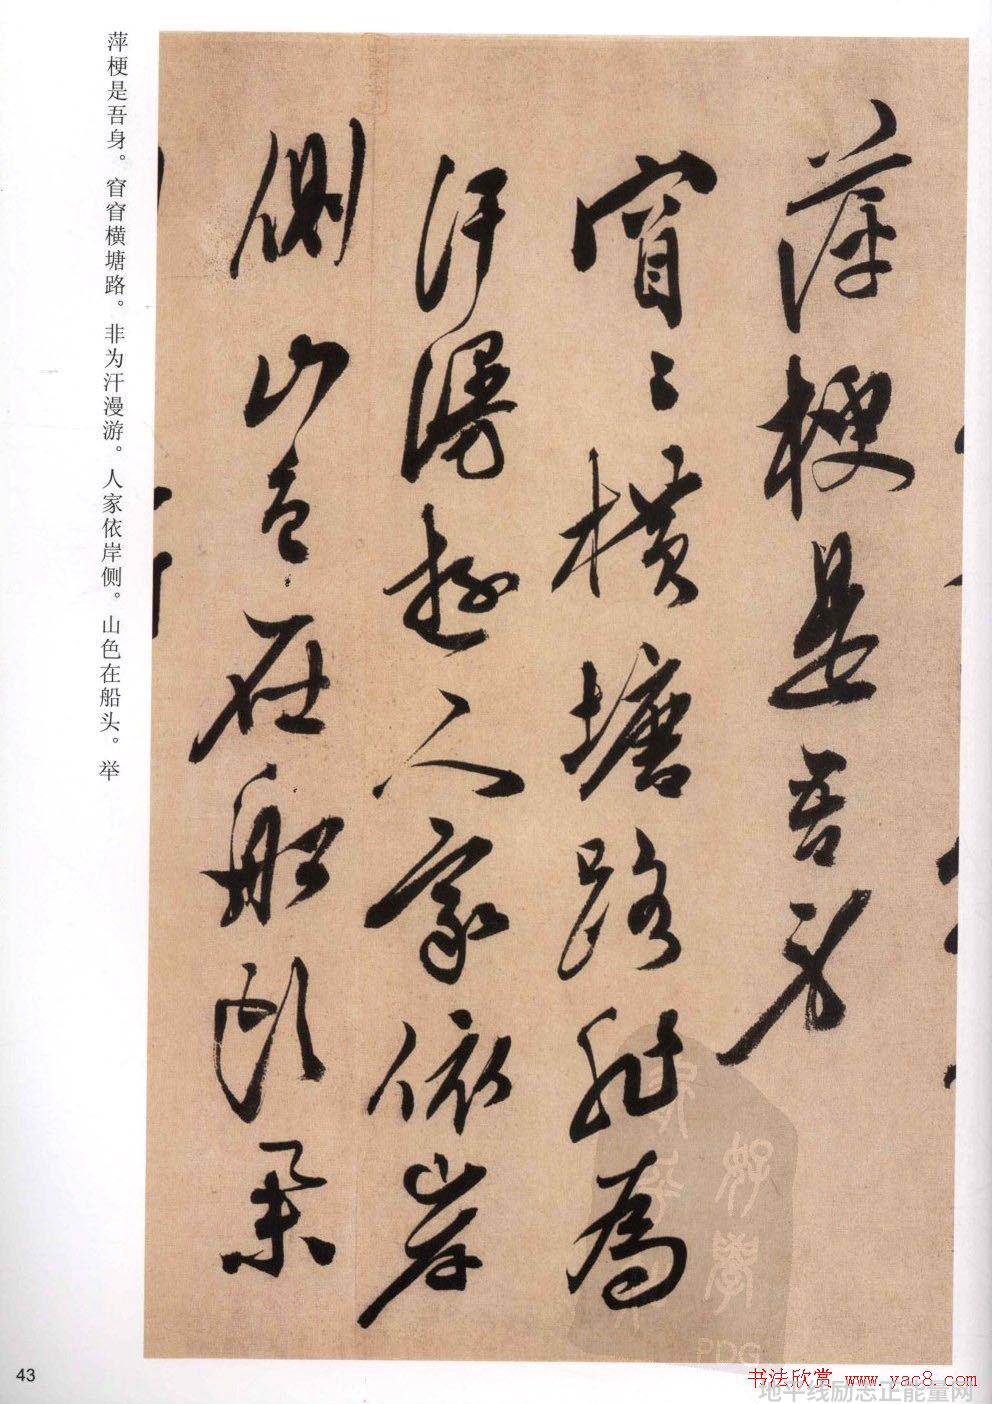 萍梗是吾身
窅〻橫塘路非為
汗漫遊人家依岸
側山色在船頭
萍梗是吾身。窅窅横塘路。非为汗漫游。人家依岸侧。山色在船头。举
43
PDG
书法欣赏 www.yac8.com
地平线励志正能量网